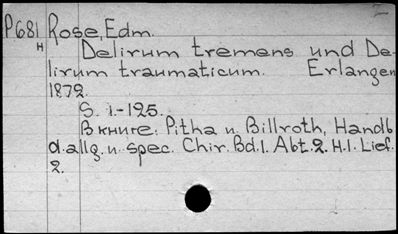 P681 Rose, Edm.
H Delirum tremens und De-
lirum traumaticum. Erlangen
1872.
S. 1.-125.
В книге: Pitha и Billroth, Handb
d. allg. u. spec. Chir. Bd. 1. Abt. 2. H. 1. Lief.
2.